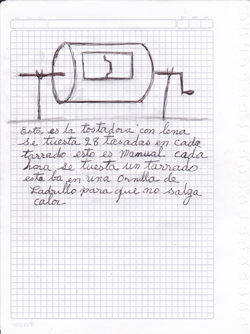 Esta es la tostadora con lena
Se tuesta 28 tasadas en cada
tarrado esto es Manual cada
hora se tuesta un tarrado
esta ba en una Ornilla de
Ladrullo para que no salga
calor